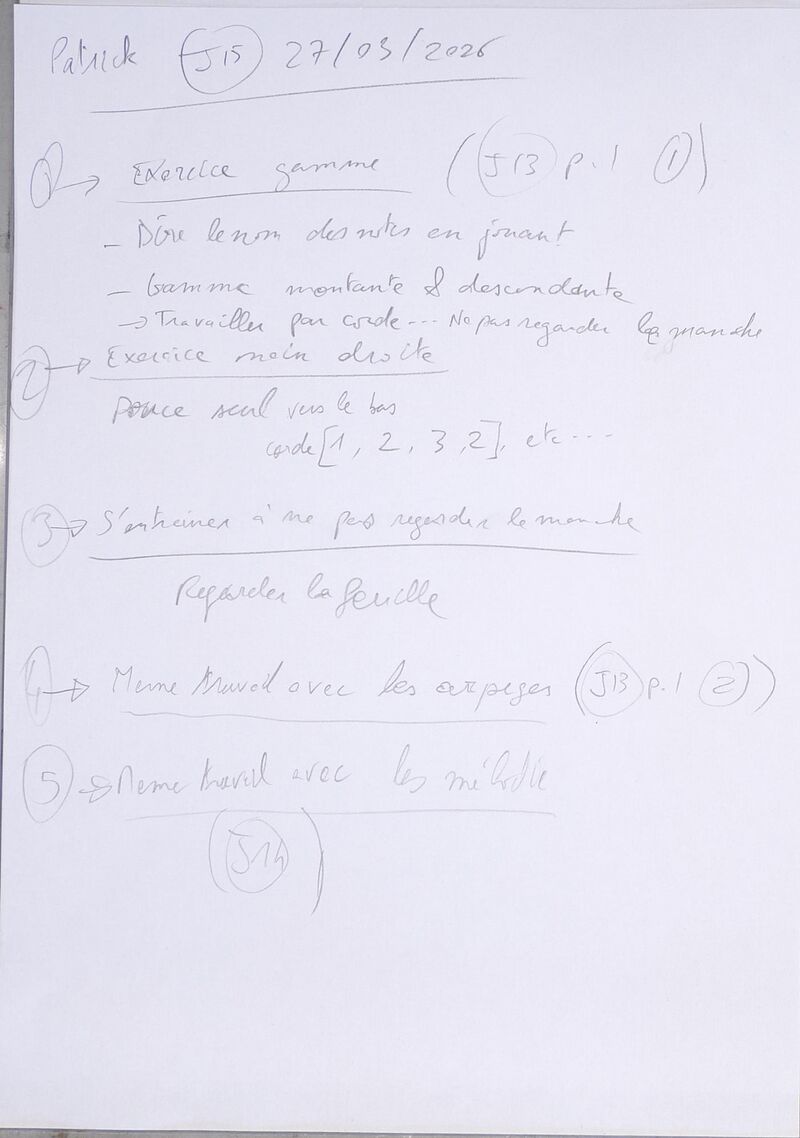 Patrick J15 27/03/2026
1 → Exercice gamme (J13 p.1 1)
- Dire le nom des notes en jouant
- Gamme montante & descendante
→ Travailler par corde... Ne pas regarder le manche
2 → Exercice main droite
Pouce seul vers le bas
corde [1, 2, 3, 2], etc...
3 → S'entrainer à ne pas regarder le manche
Regarder la feuille
4 → Meme travail avec les arpeges (J13 p.1 2)
5 → Meme travail avec les mélodie
(J14)